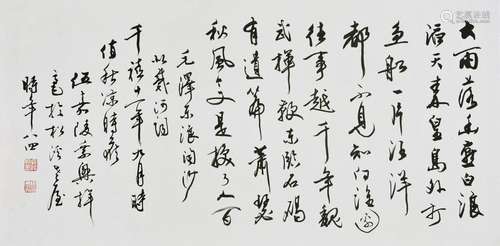 大雨落幽燕白浪
滔天秦皇島外打
魚船一片汪洋
都不見知向誰邊
往事越千年魏
武揮鞭东臨石碣
有遺篇蕭瑟
秋風今又是換了人间
毛澤东浪淘沙
北戴河詞
千禧十一年九月時
值秋凉時
伍嘉陵
於松老屋
時年八四